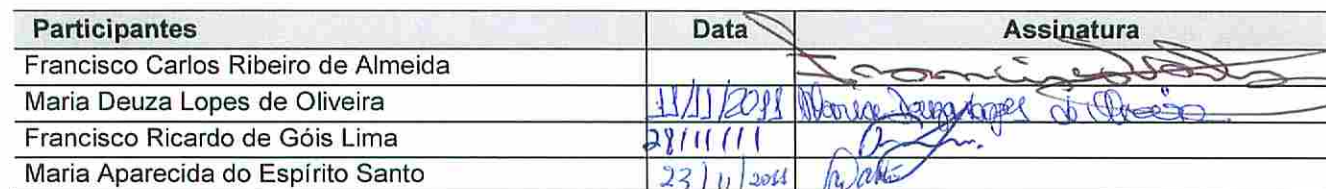 Participantes Data Assinatura
Francisco Carlos Ribeiro de Almeida
Maria Deuza Lopes de Oliveira 11/11/2011 Maria Deuza Lopes de Oliveira
Francisco Ricardo de Góis Lima 28/11/11
Maria Aparecida do Espírito Santo 23/11/2011